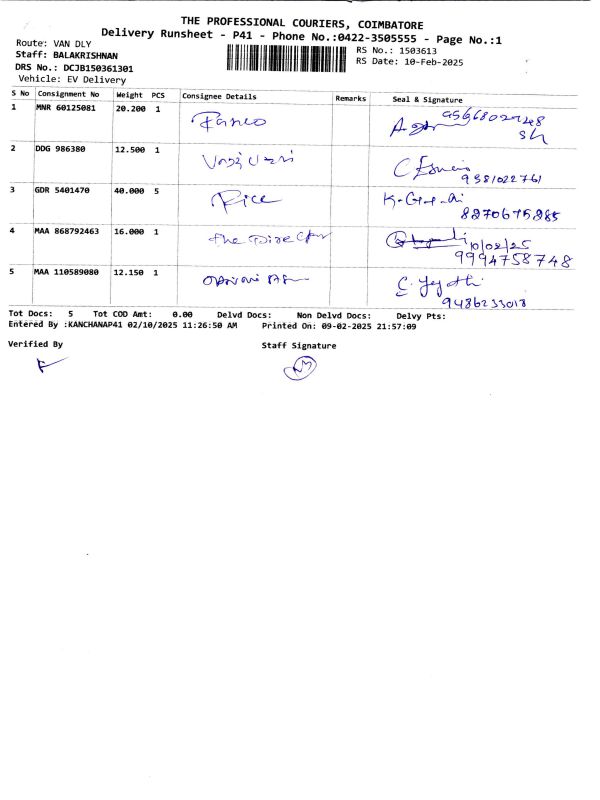 THE PROFESSIONAL COURIERS, COIMBATORE
Delivery Runsheet - P41 - Phone No.:0422-3505555 - Page No.:1
Route: VAN DLY
Staff: BALAKRISHNAN
DRS No.: DCJB150361301
Vehicle: EV Delivery
RS No.: 1503613
RS Date: 10-Feb-2025
S No Consignment No Weight PCS Consignee Details Remarks Seal & Signature
1 MNR 60125081 20.200 1
2 DDG 986380 12.500 1
9981022761
3 GDR 5401470 40.000 5 Rice
4 MAA 868792463 16.000 1 The Director
10/02/25
9994758748
5 MAA 110589080 12.150 1
9486233018
Tot Docs: 5 Tot COD Amt: 0.00 Delvd Docs: Non Delvd Docs: Delvy Pts:
Entered By :KANCHANAP41 02/10/2025 11:26:50 AM Printed On: 09-02-2025 21:57:09
Verified By Staff Signature